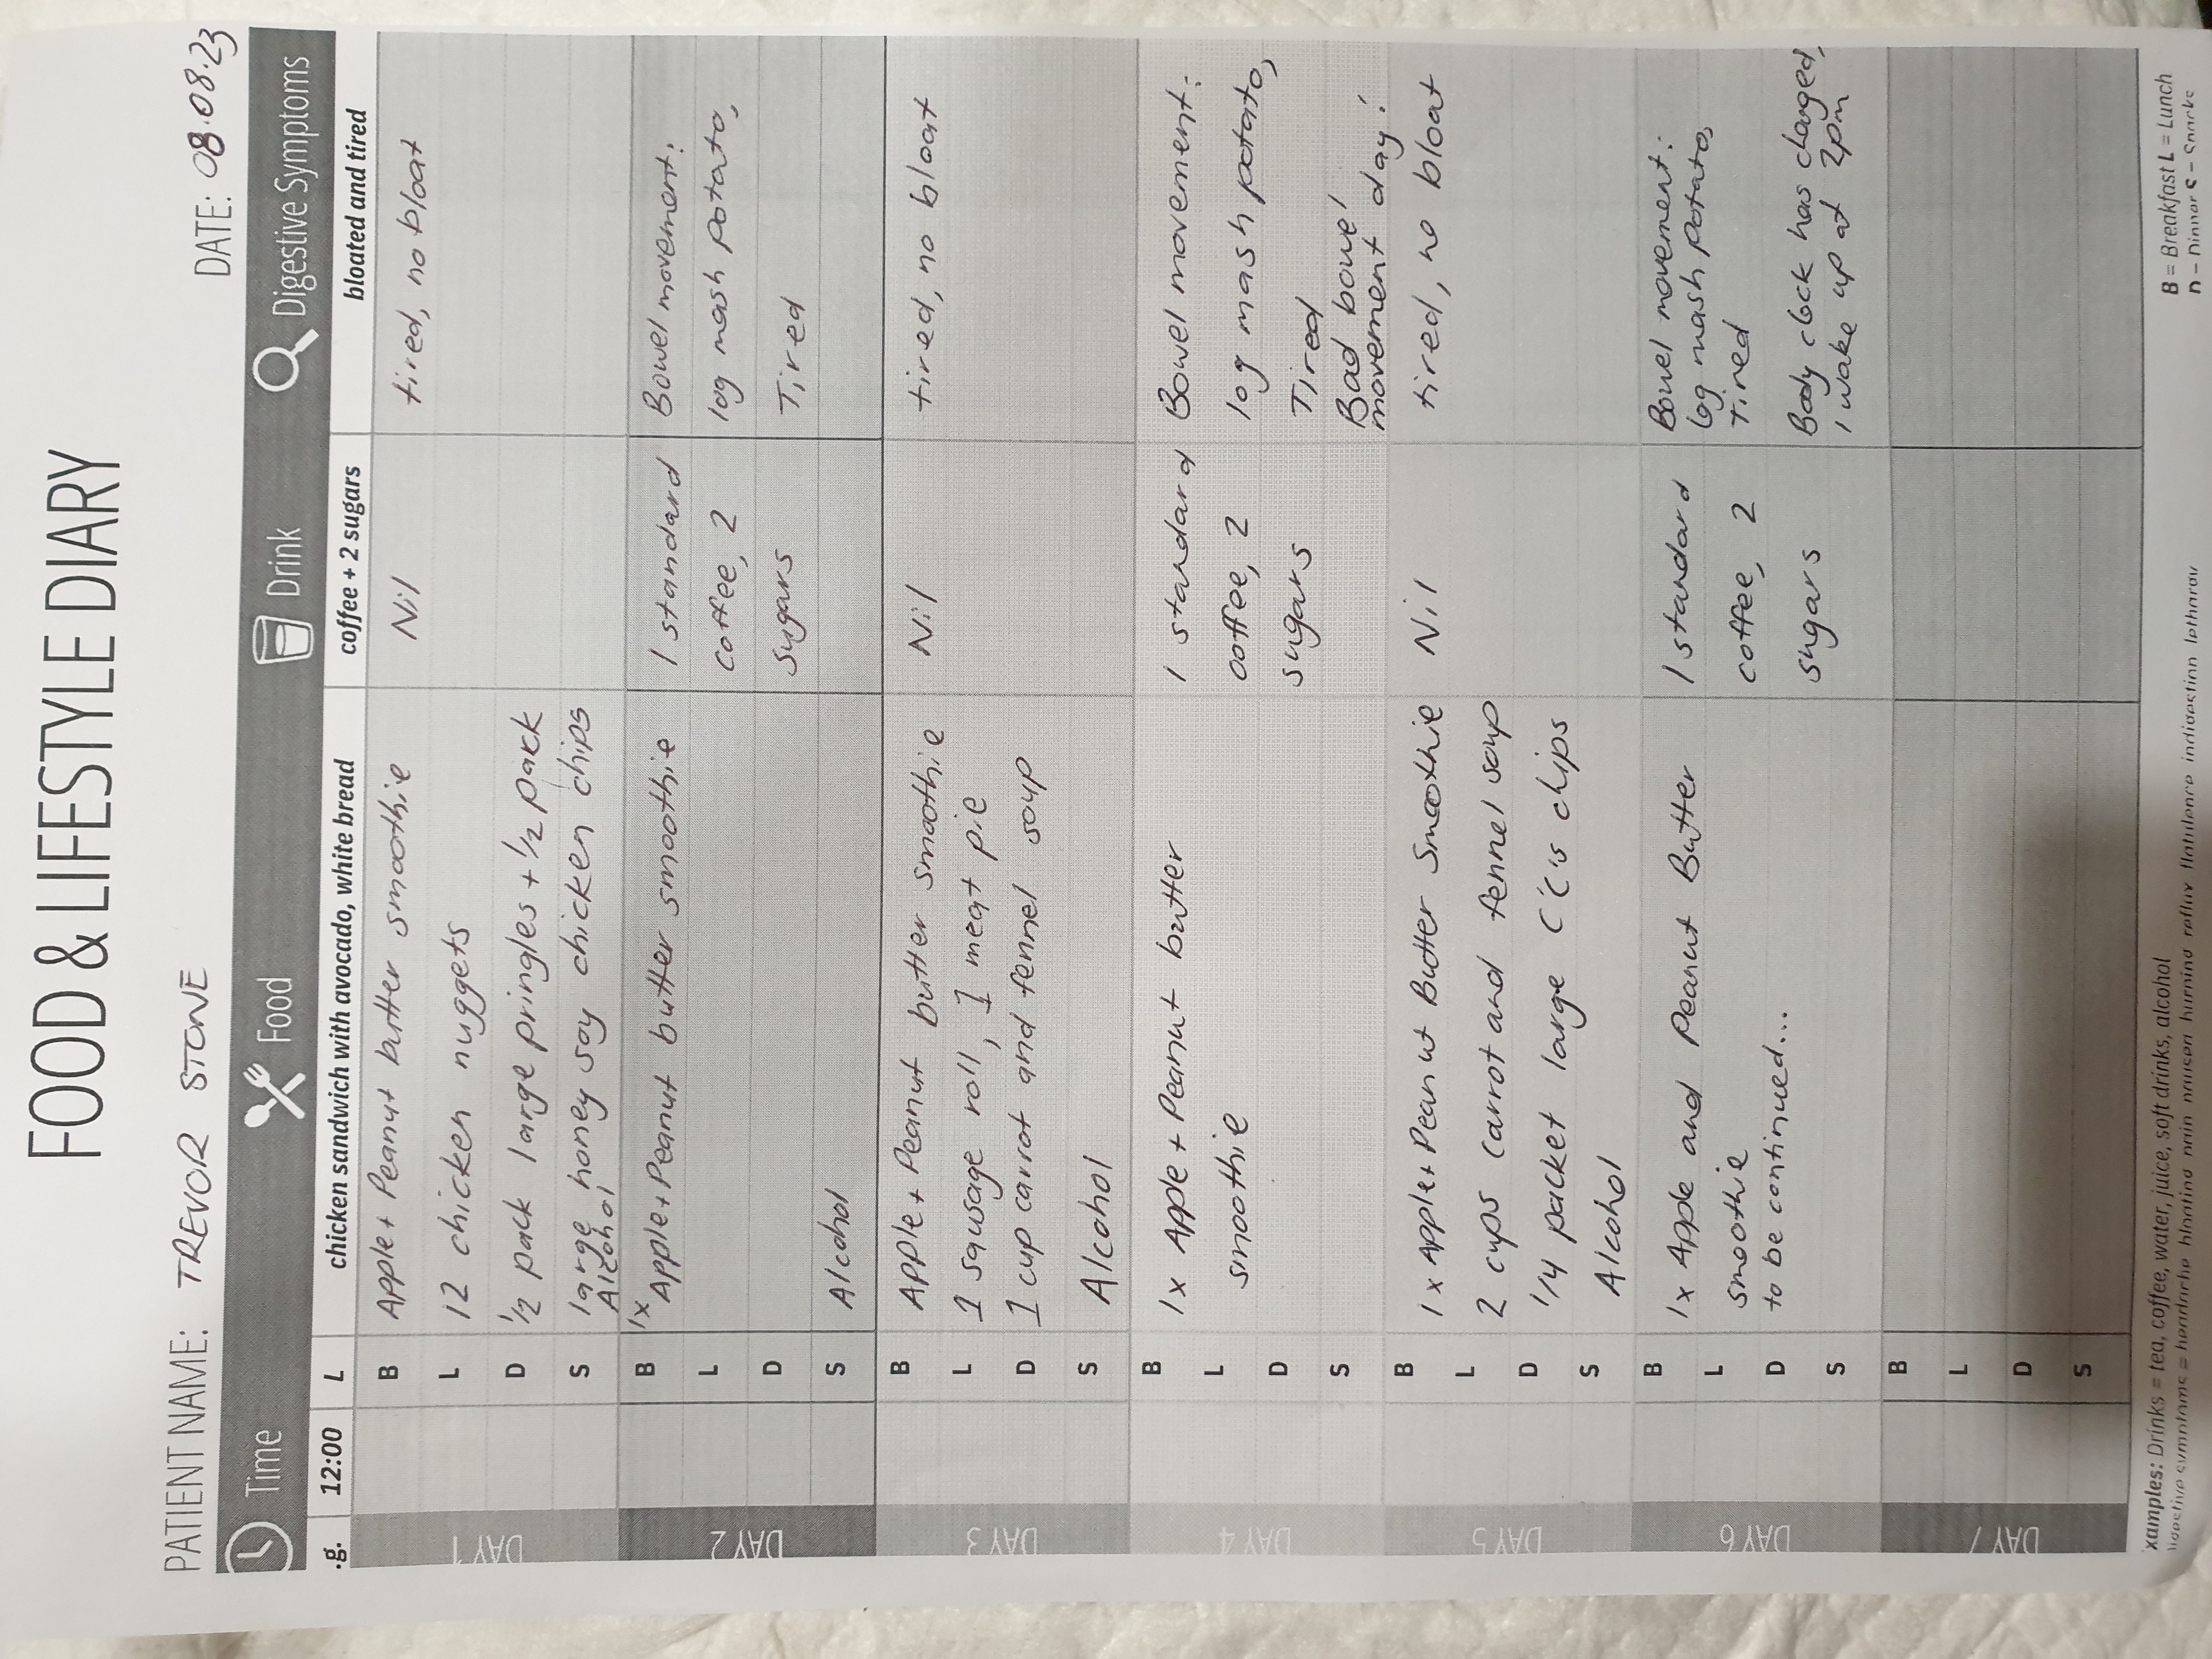 FOOD & LIFESTYLE DIARY
PATIENT NAME: TREVOR STONE DATE: 08.08.23
Time Food Drink Digestive Symptoms
.g. 12:00 L chicken sandwich with avocado, white bread coffee + 2 sugars bloated and tired
DAY 1
B Apple + Peanut butter smoothie Nil tired, no bloat
L 12 chicken nuggets
D 1/2 pack large pringles + 1/2 pack
S large honey soy chicken chips
Alcohol
DAY 2
1x
B Apple + Peanut butter smoothie 1 standard Bowel movement:
L coffee, 2 log mash potato,
D sugars Tired
S Alcohol
DAY 3
B Apple + Peanut butter smoothie Nil tired, no bloat
L 1 sausage roll, 1 meat pie
D 1 cup carrot and fennel soup
S Alcohol
DAY 4
B 1x Apple + Peanut butter 1 standard Bowel movement:
L smoothie coffee, 2 log mash potato,
D sugars Tired
S Bad bowel
movement day!
DAY 5
B 1x Apple + Peanut Butter Smoothie Nil tired, no bloat
L 2 cups carrot and fennel soup
D 1/4 packet large CC's chips
S Alcohol
DAY 6
B 1x Apple and Peanut Butter 1 standard Bowel movement:
L smoothie coffee, 2 log mash potato,
D to be continued... sugars Tired
S Body clock has changed,
I wake up at 2pm
DAY 7
B
L
D
S
xamples: Drinks = tea, coffee, water, juice, soft drinks, alcohol B = Breakfast L = Lunch